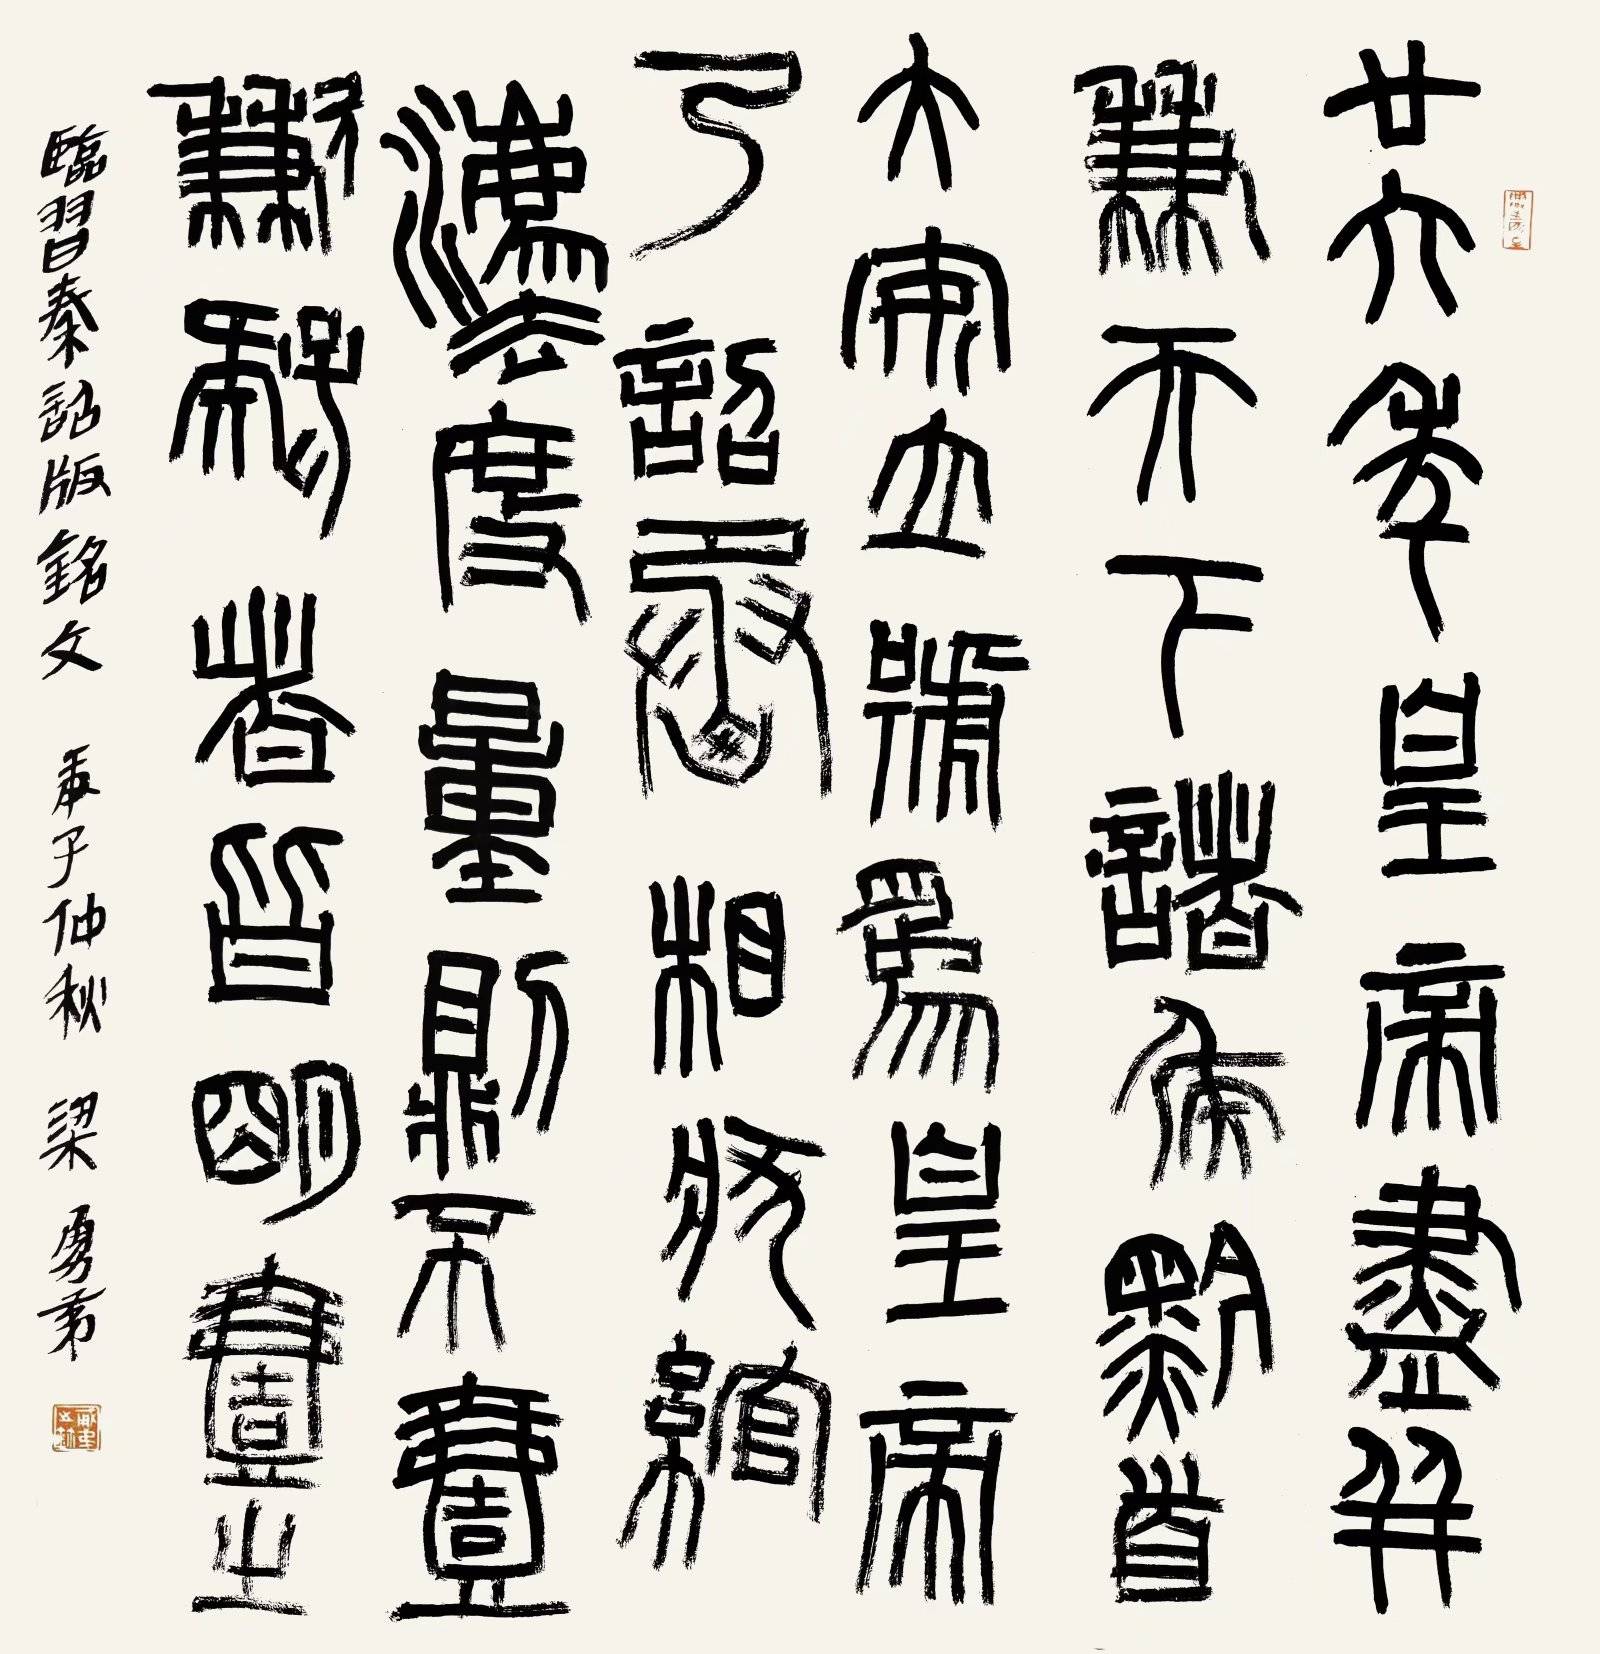 廿六年皇帝盡并
兼天下諸侯黔首
大安立號為皇帝
乃詔丞相狀綰
灋度量則不壹
歉疑者皆明壹之
臨習秦詔版銘文 庚子仲秋 梁勇